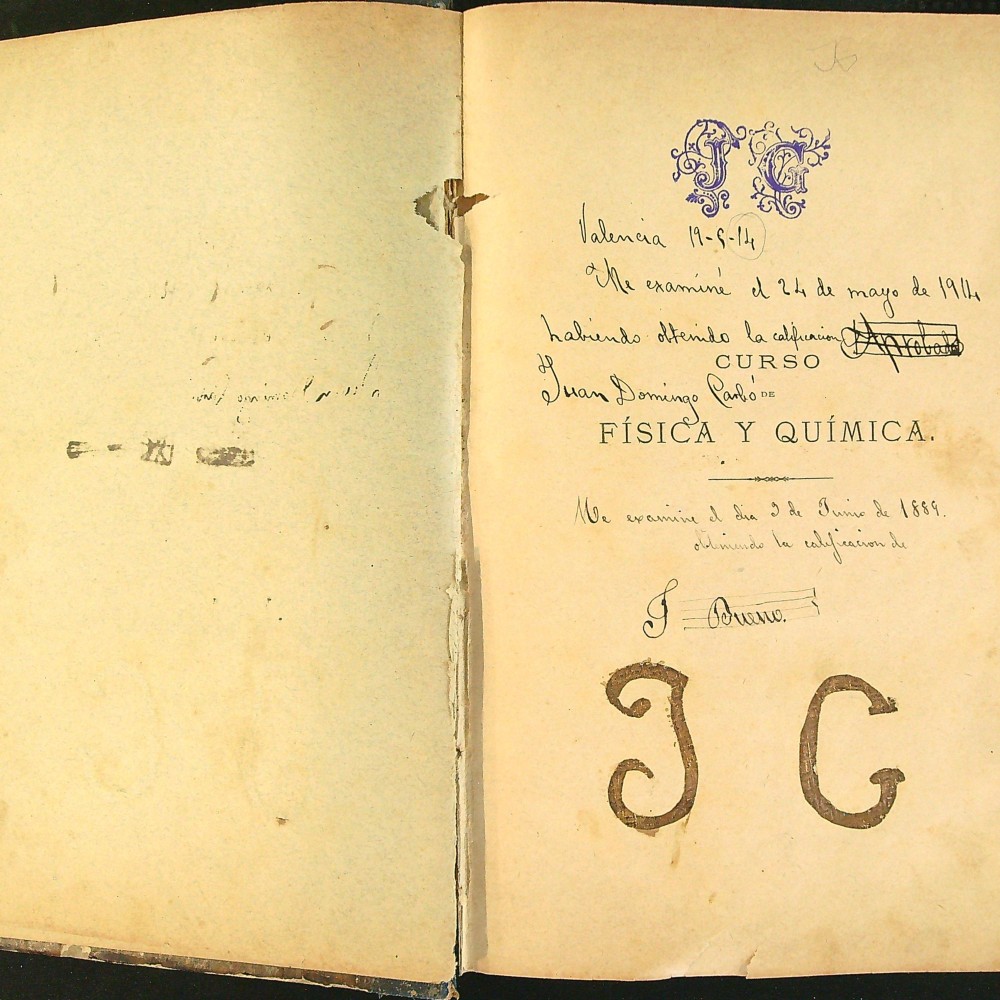 J G
Valencia 19-5-14
Me examiné el 24 de mayo de 1914
habiendo obtenido la calificacion Aprobado
CURSO
Juan Domingo Carbó
DE
FÍSICA Y QUÍMICA.
Me examine el dia 3 de Junio de 1889.
obteniendo la calificacion de
Bueno.
J G